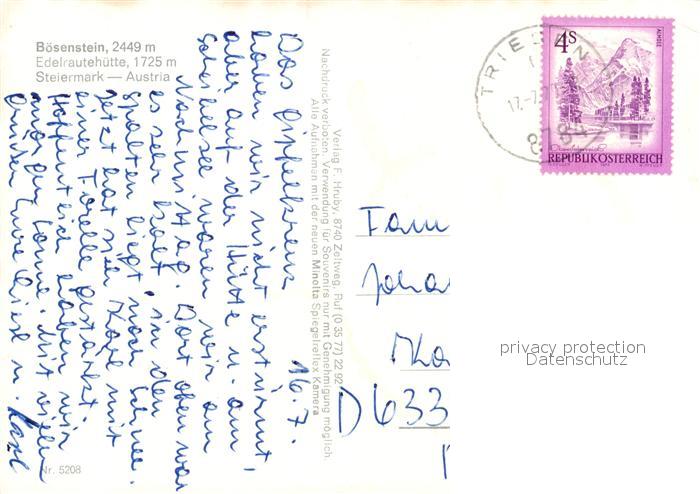 Bösenstein, 2449 m
Edelrautehütte, 1725 m
Steiermark — Austria
16.7.
Das Gipfelkreuz
haben wir nicht erstürmt,
aber auf der Hütte u. am
Scheiblsee waren wir am
Nachmittag. Dort oben war
es sehr kalt, in den
Spalten liegt noch Schnee.
Jetzt hat sich Karl mit
einer Forelle gestärkt.
Hoffentlich haben wir
morgen Sonne. Mit vielen
Grüßen Eure Liesl u. Karl
Nr. 5208
Verlag F. Hruby, 8740 Zeltweg, Ruf (0 35 77) 22 92
Nachdruck verboten. Verwendung für Souvenirs nur mit Genehmigung möglich.
Alle Aufnahmen mit der neuen Minolta Spiegelreflex Kamera
TRIEBEN
17.-7.
8784
4 S
ALMSEE
REPUBLIK ÖSTERREICH
Fam
Joha
D 633
privacy protection
Datenschutz